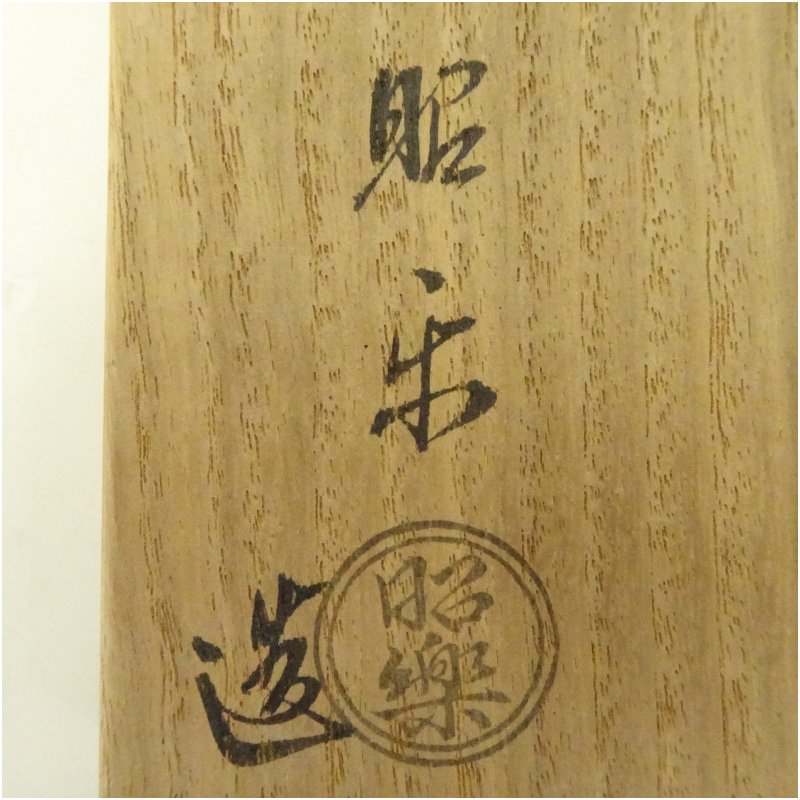 昭樂
造
昭樂